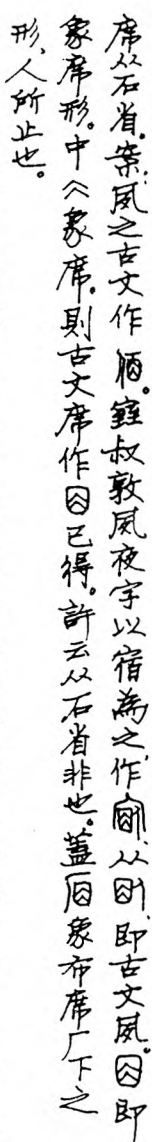 席从石省。案:夙之古文作𠈇。䥫叔敦夙夜字以宿為之,作,从,即古文夙。即
象席形。中仌象席。則古文席作已得。許云从石省非也。蓋象布席厂下之
形、人所止也。